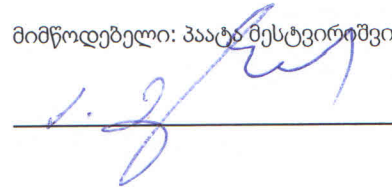 მიმწოდებელი: პაატა მესტვირიშვი